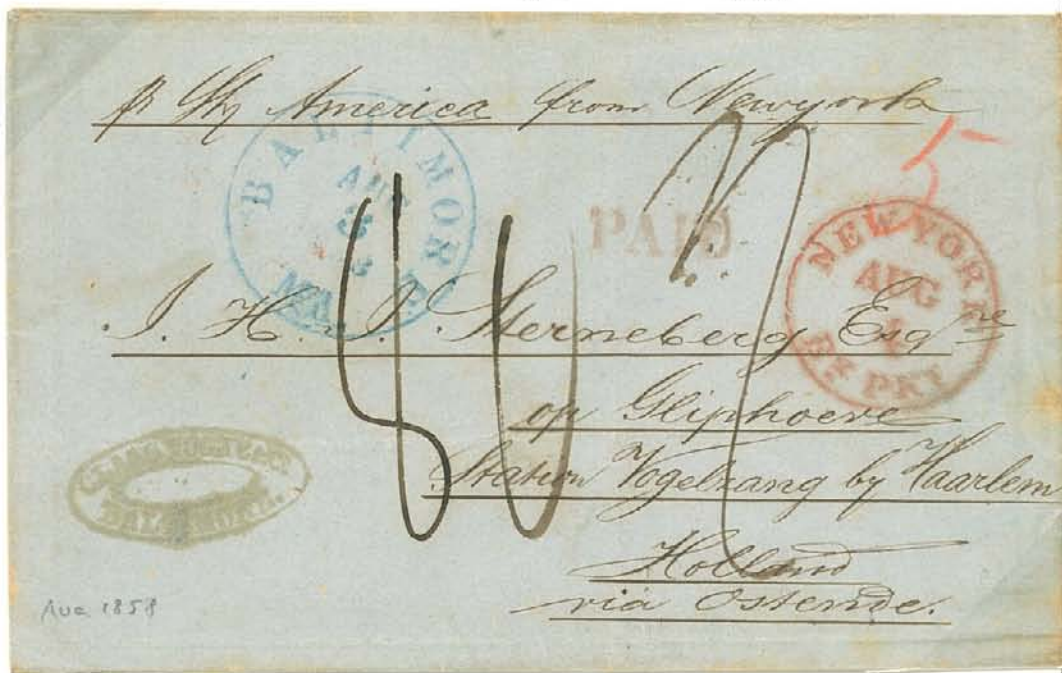 America from Newyork
BALTIMORE
AUG
Md.
PAID
5
NEW YORK
AUG
4
Br PKT
J. H. J. Sterneberg Esqre
op Gliphoeve
Station Vogelzang by Haarlem
Holland
via Ostende.
Aug 1858